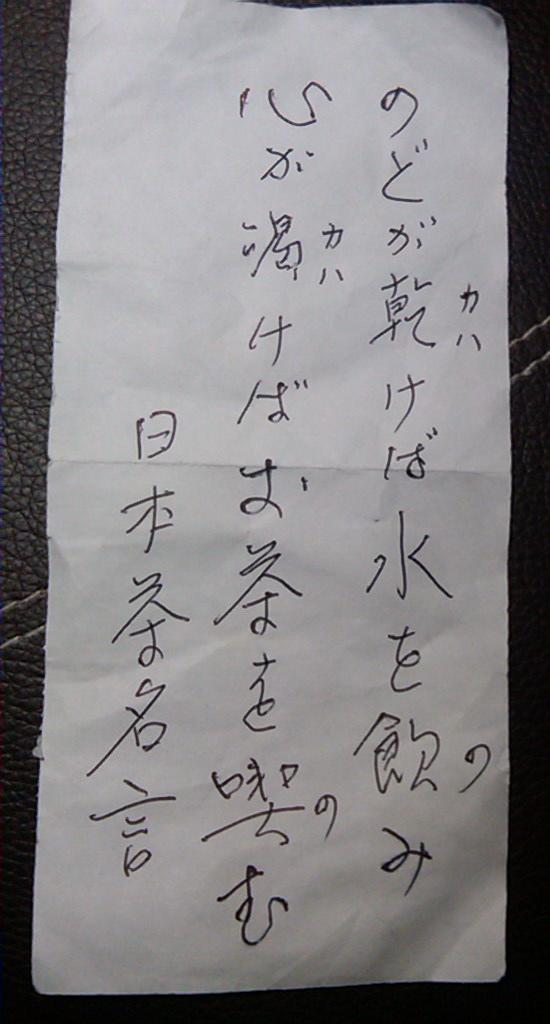 のどが乾けば水を飲み
カハ
の
心が渇けばお茶を喫む
カハ
の
日本茶名言